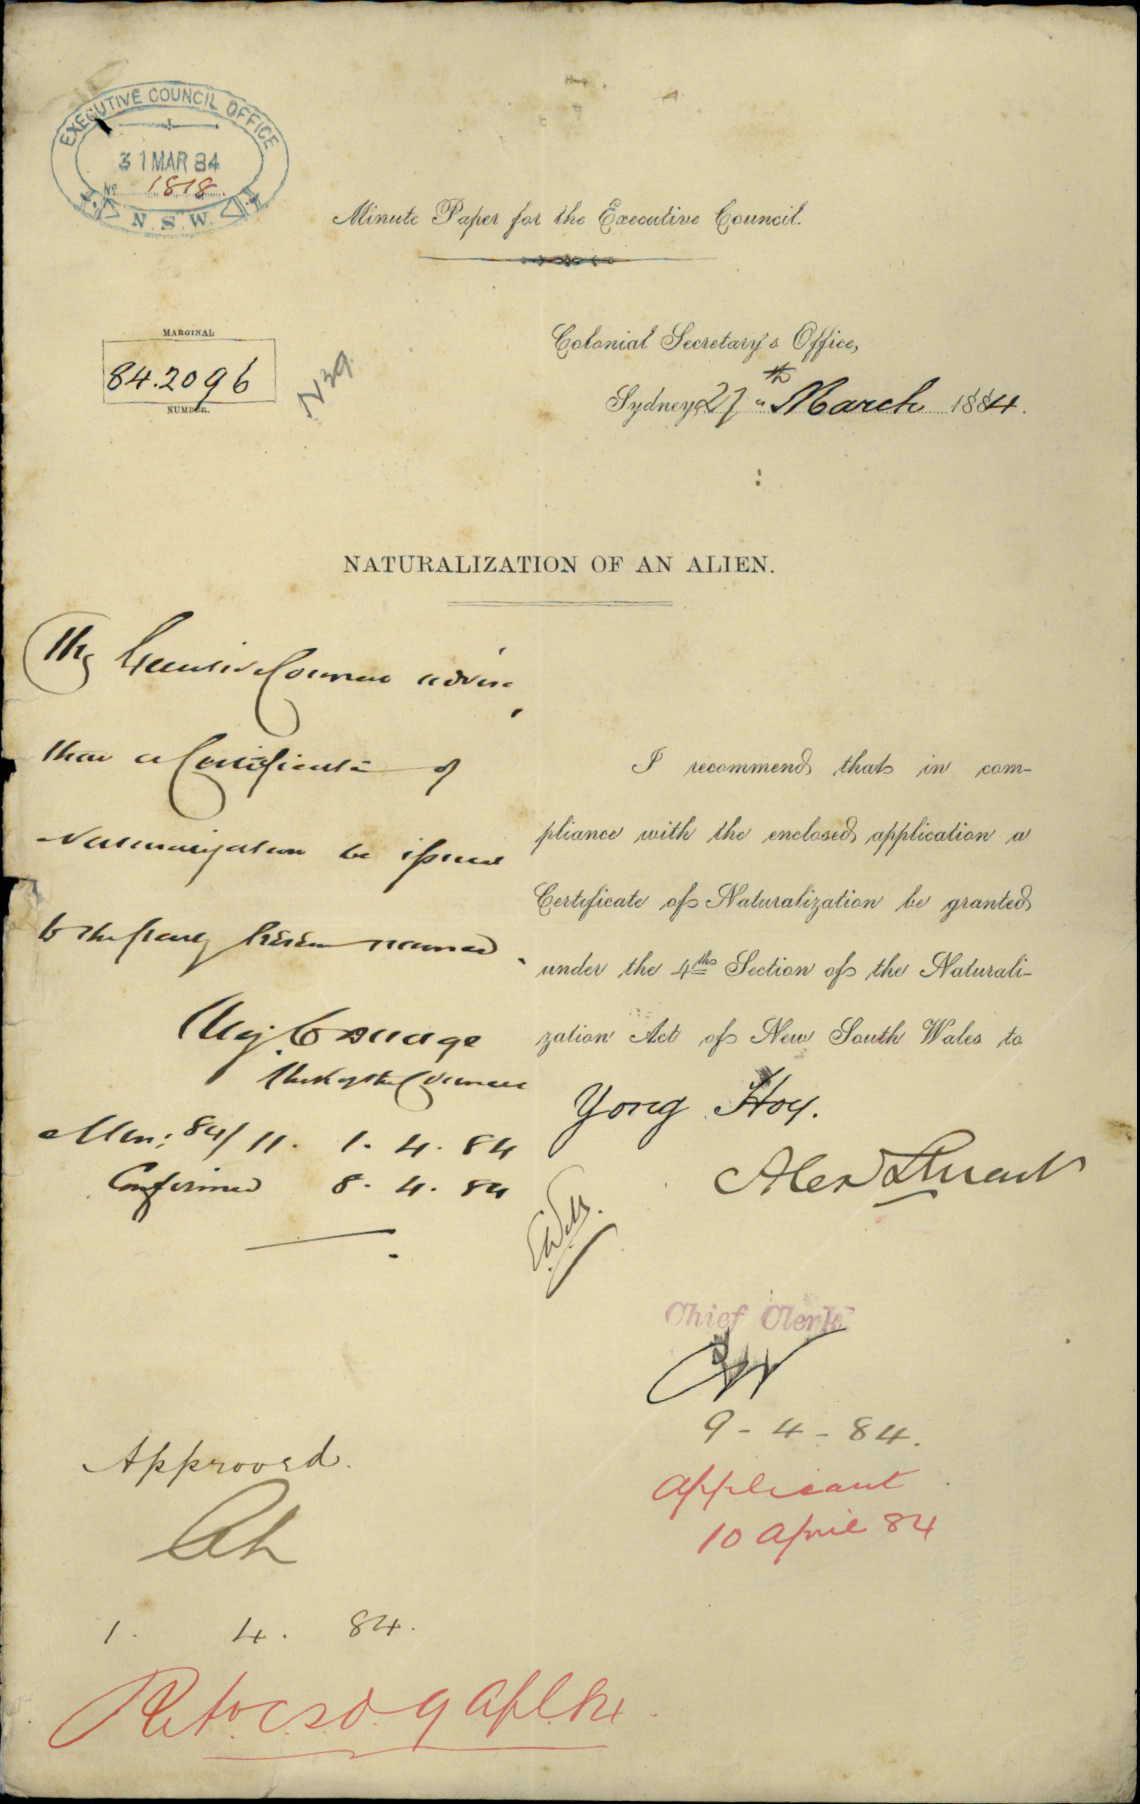 EXECUTIVE COUNCIL OFFICE
31 MAR 84
No 1818.
N.S.W.
Minute Paper for the Executive Council.
MARGINAL
84.2096
NUMBER.
N39
Colonial Secretary's Office,
Sydney, 27th March 1884.
NATURALIZATION OF AN ALIEN.
The Executive Council advise
that a Certificate of
Naturalization be issued
to the party herein named.
Clerk of the Council
Min: 84/11. 1. 4. 84
Confirmed 8. 4. 84
I recommend that in com-
pliance with the enclosed application a
Certificate of Naturalization be granted
under the 4th Section of the Naturali-
zation Act of New South Wales to
Yong Hoy.
Alex Stuart
Chief Clerk
CW
9-4-84.
Applicant
10 April 84
Approved.
1. 4. 84.
Ret to C.S.O. 9 Apl. 84